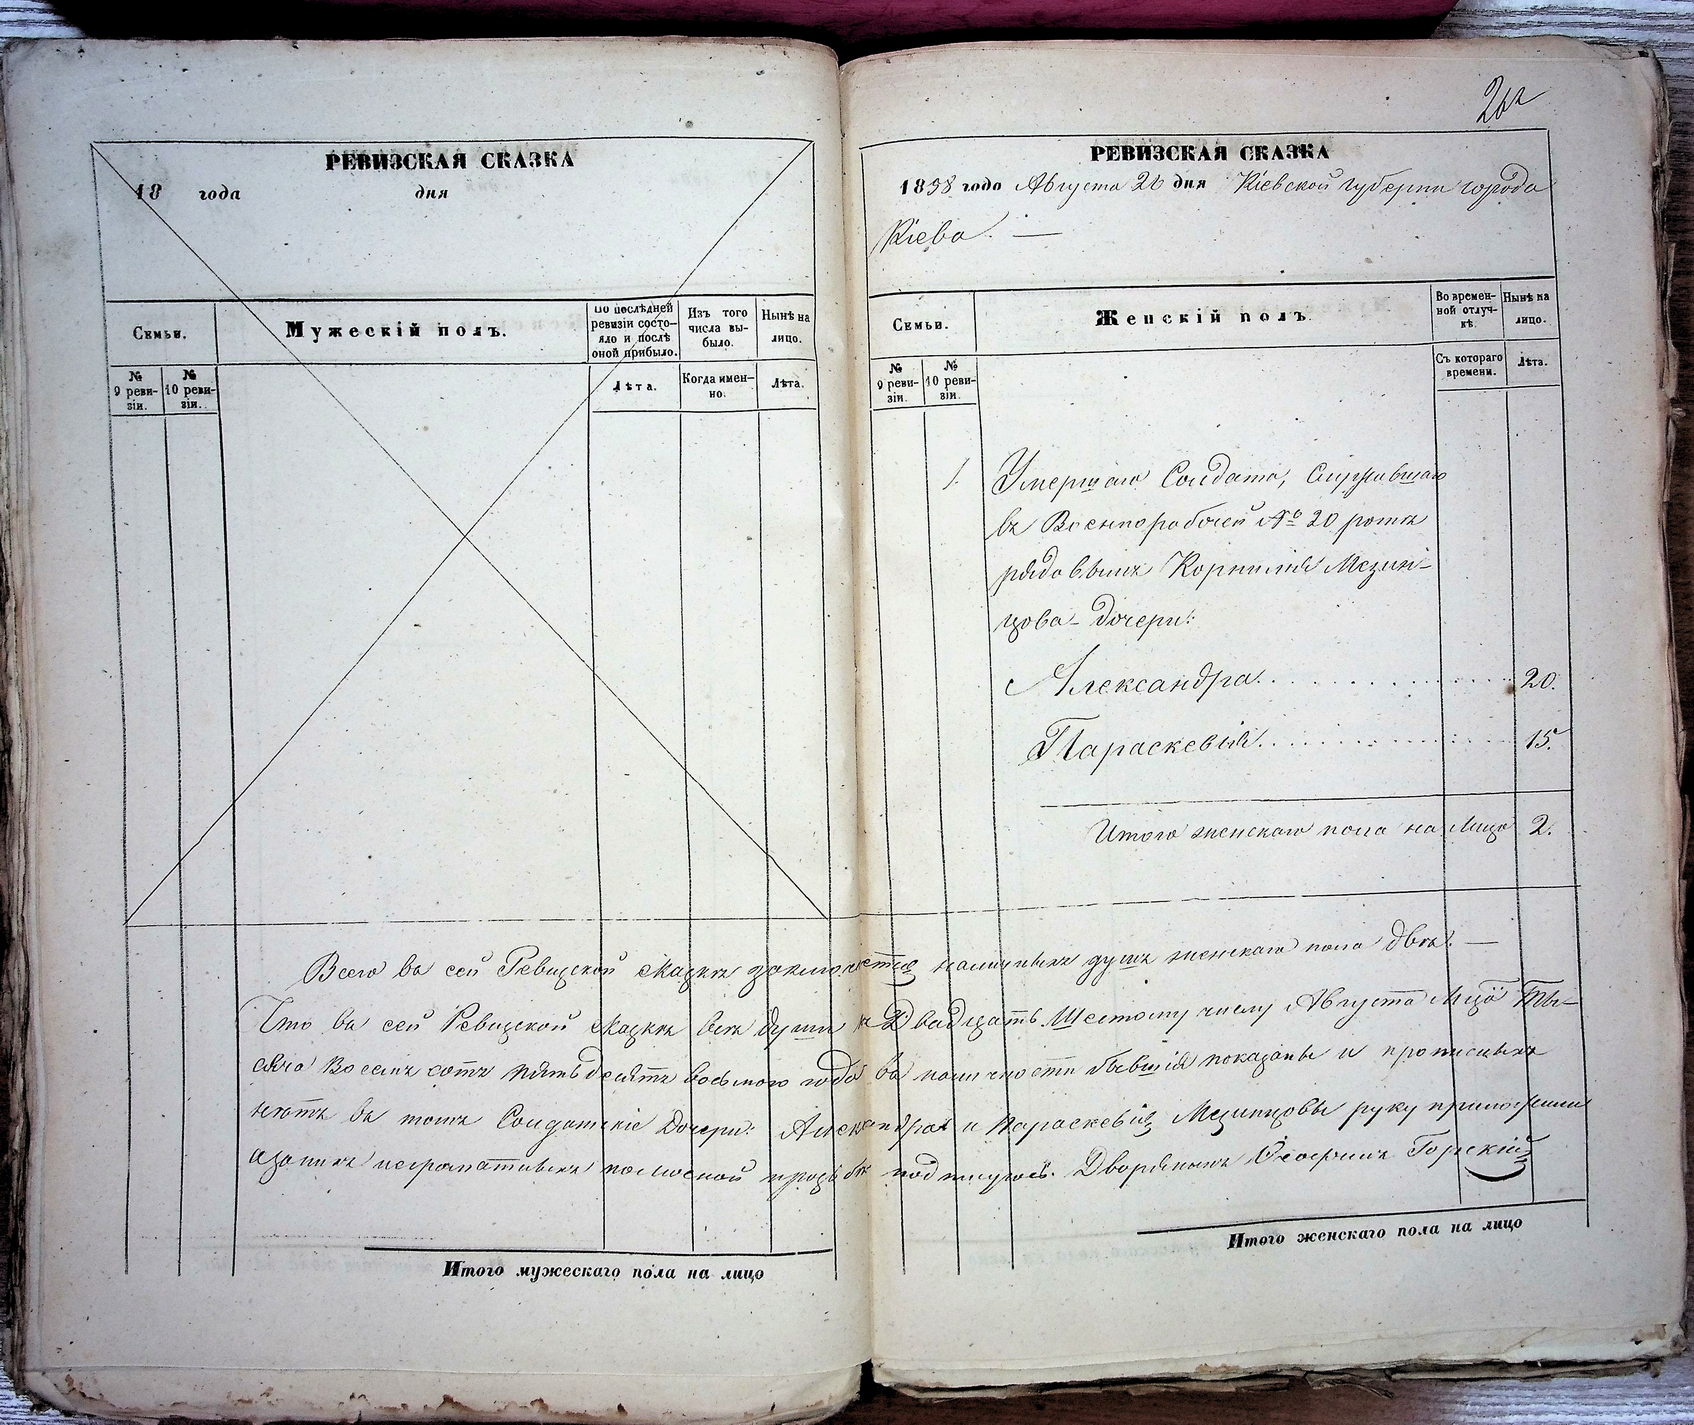 РЕВИЗСКАЯ СКАЗКА
18 года дня
Семьи.
Мужескій полъ.
По послѣдней ревизіи состояло и послѣ оной прибыло.
Изъ того числа выбыло.
Нынѣ на лицо.
№ 9 ревизіи.
№ 10 ревизіи.
Лѣта.
Когда именно.
Лѣта.
РЕВИЗСКАЯ СКАЗКА
1858 года Августа 26 дня Кіевской губерніи города
Кіева. —
Семьи.
Женскій полъ.
Во временной отлучкѣ.
Нынѣ на лицо.
№ 9 ревизіи.
№ 10 ревизіи.
Съ котораго времени.
Лѣта.
1. Умершаго Солдата, Служившаго
въ Военнорабочей № 20 ротѣ
рядовымъ Корнилія Мезин-
цова - дочери:
Александра. 20.
Параскевія. 15.
Итого женскаго пола на Лицо 2.
Всего въ сей Ревизской сказкѣ заключается наличныхъ душъ женскаго пола двѣ. —
Что въ сей Ревизской сказкѣ всѣ души къ Двадцать Шестому числу Августа Мца Ты-
сяча Восемь сотъ пятьдесятъ восьмого года въ наличности бывшія показаны и прописныхъ
нѣтъ въ томъ Солдатскіе Дочери: Александра и Параскевія Мезинцовы руку приложили
а за нихъ неграматныхъ по личной прозьбѣ подписуюсь. Дворянинъ Горскій
Итого мужескаго пола на лицо
Итого женскаго пола на лицо